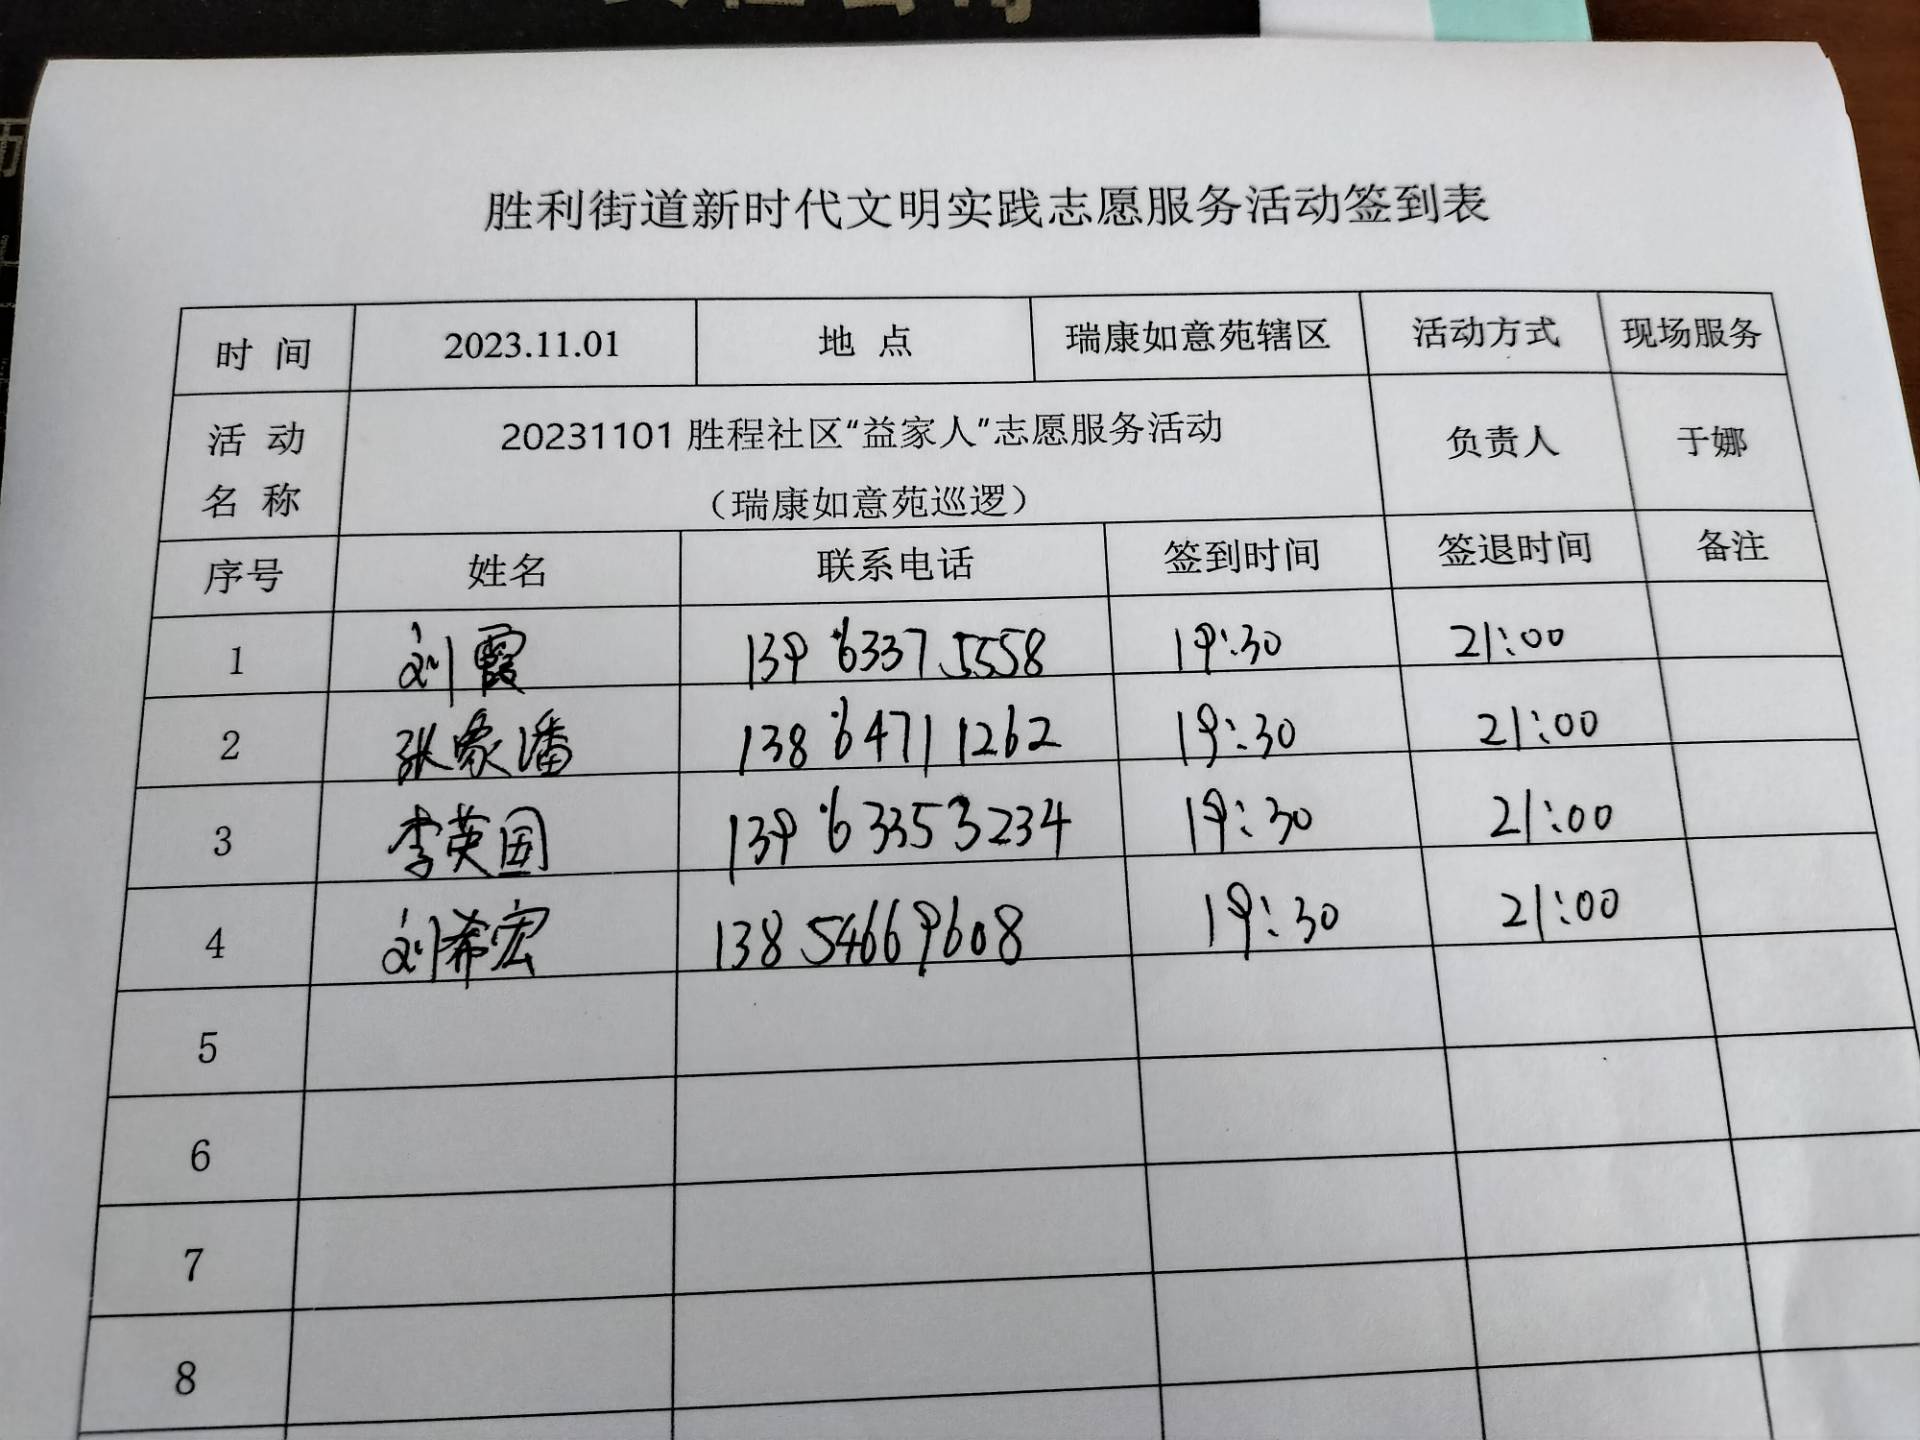 胜利街道新时代文明实践志愿服务活动签到表
时 间 2023.11.01 地 点 瑞康如意苑辖区 活动方式 现场服务
活 动 名 称 20231101 胜程社区“益家人”志愿服务活动 负责人 于娜
（瑞康如意苑巡逻）
序号 姓名 联系电话 签到时间 签退时间 备注
1 刘霞 13963375558 19:30 21:00
2 张家潘 13864711262 19:30 21:00
3 李英国 13963353234 19:30 21:00
4 刘希宏 13854669608 19:30 21:00
5
6
7
8